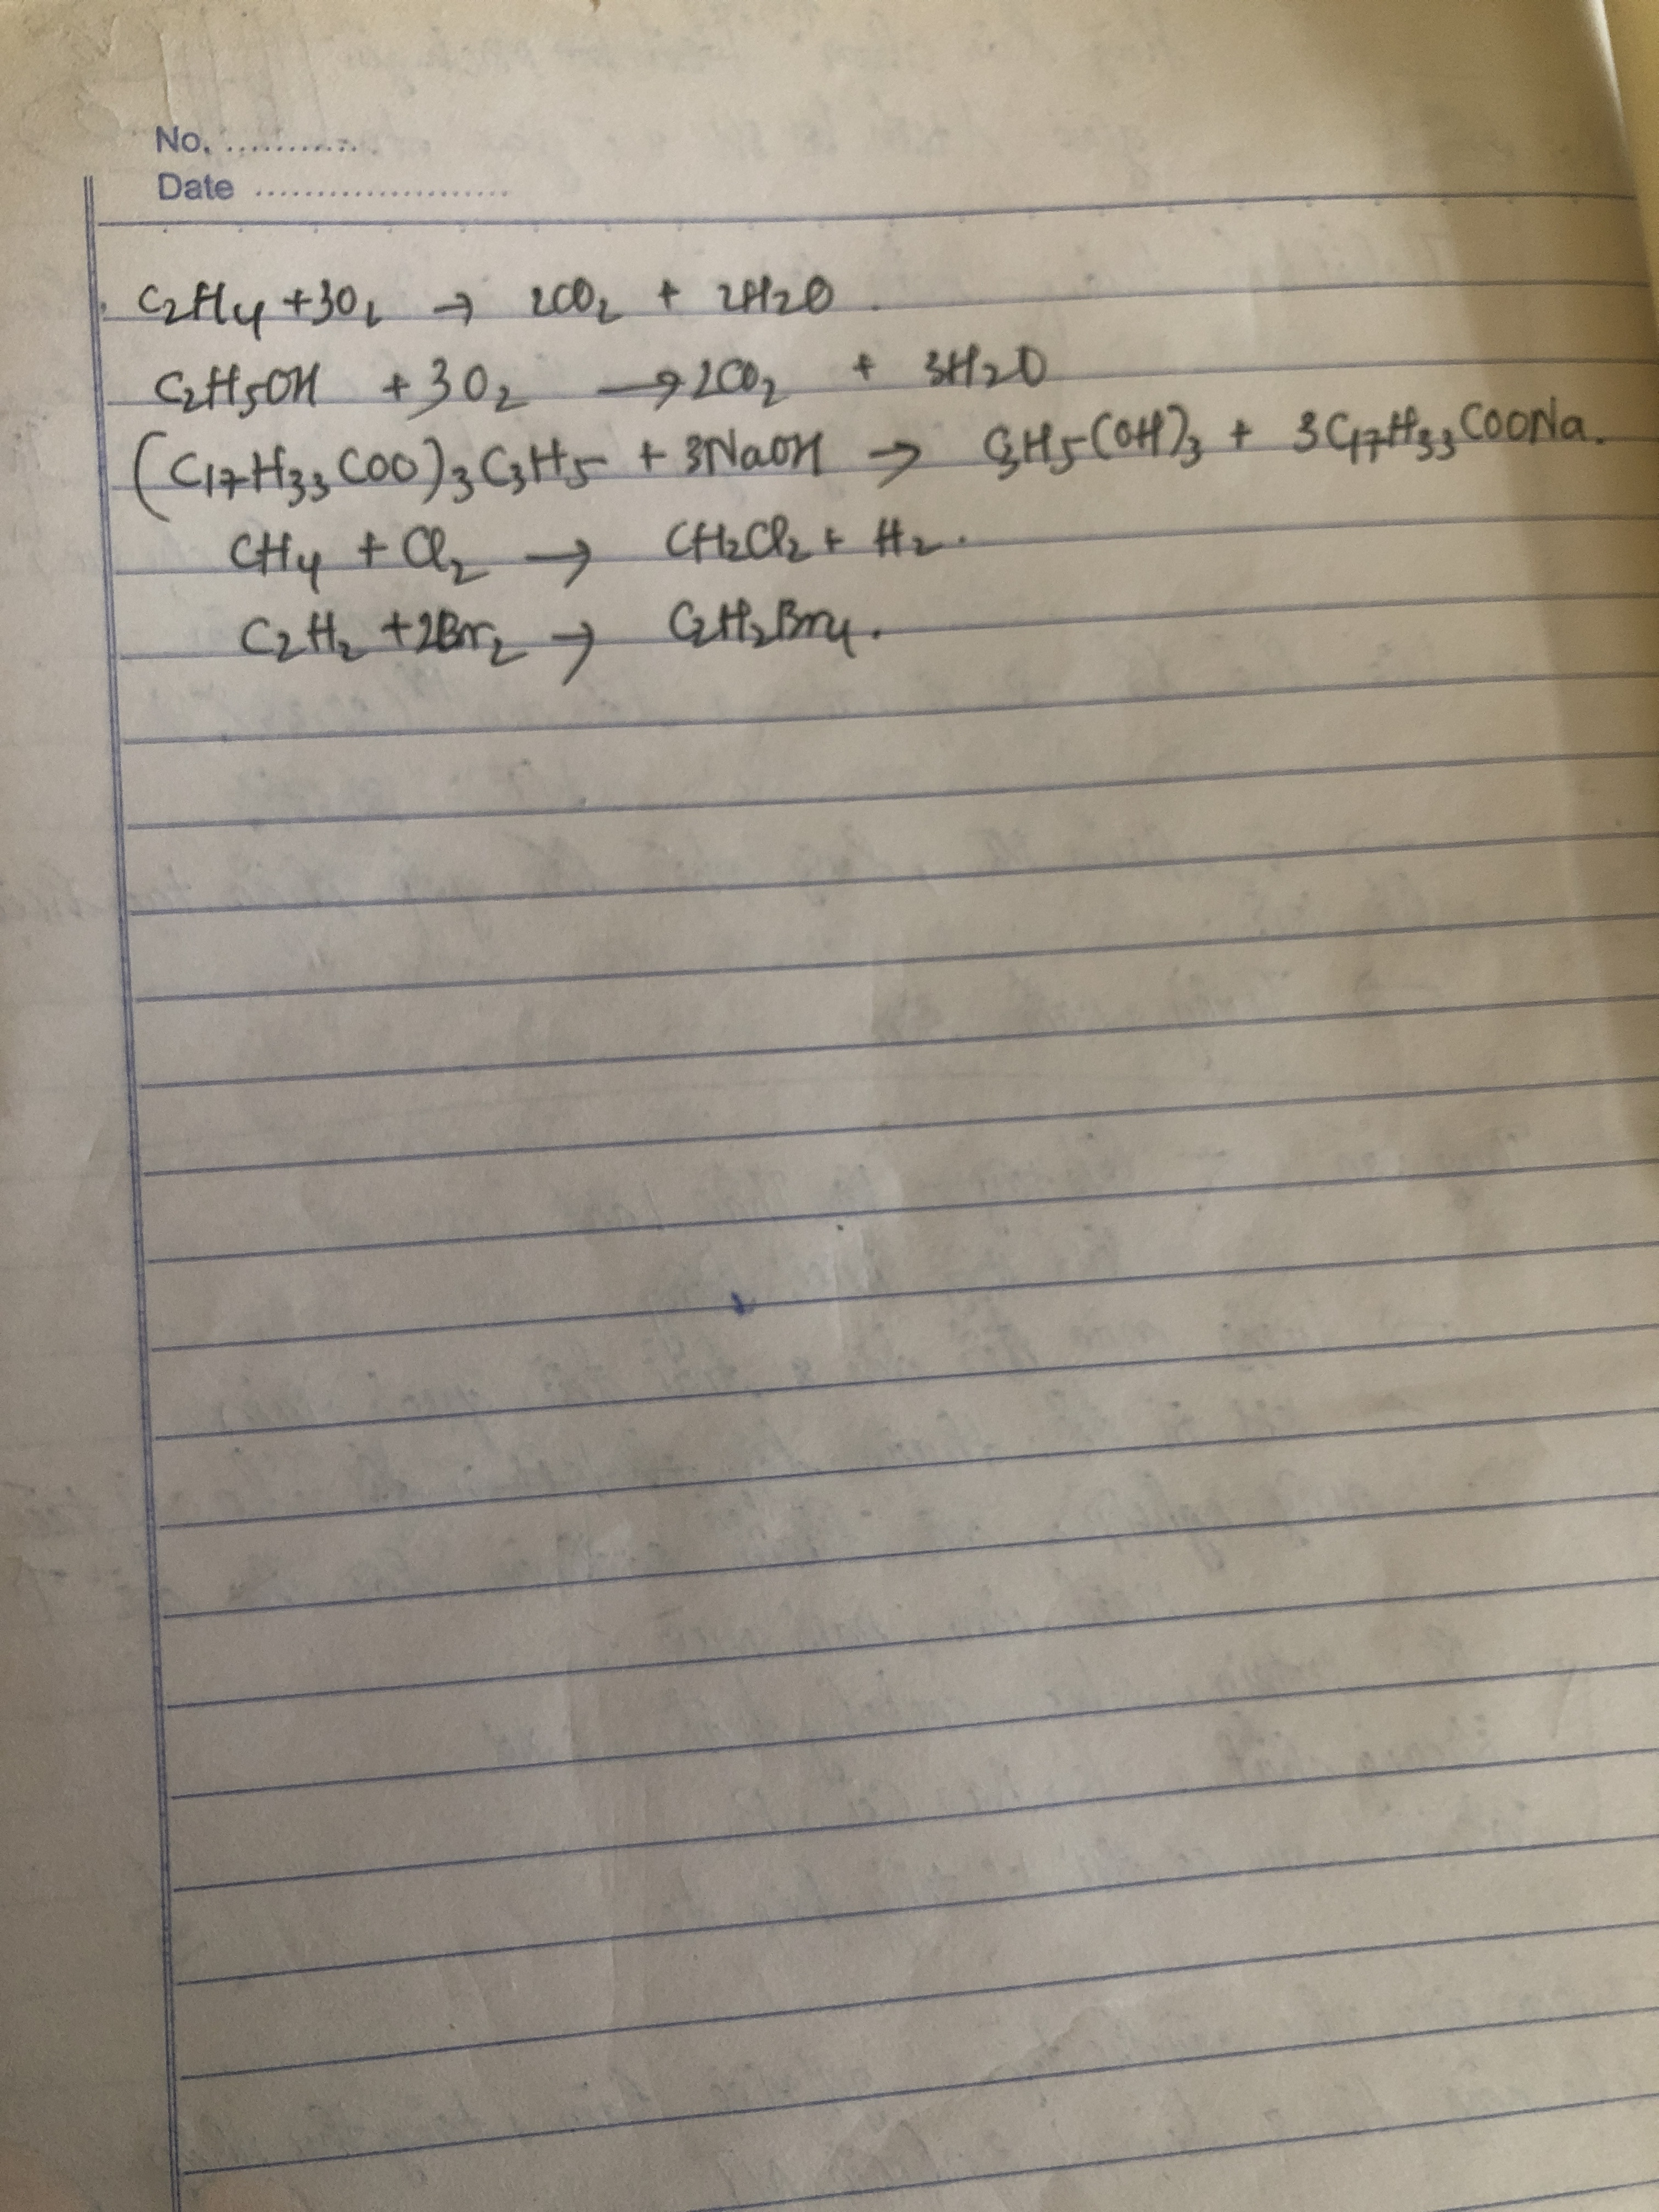 No. ............
Date ......................
C2H4 + 3O2 → 2CO2 + 2H2O.
C2H5OH + 3O2 → 2CO2 + 3H2O
(C17H33COO)3C3H5 + 3NaOH → C3H5(OH)3 + 3C17H33COONa.
CH4 + Cl2 → CH2Cl2 + H2.
C2H2 + 2Br2 → C2H2Br4.